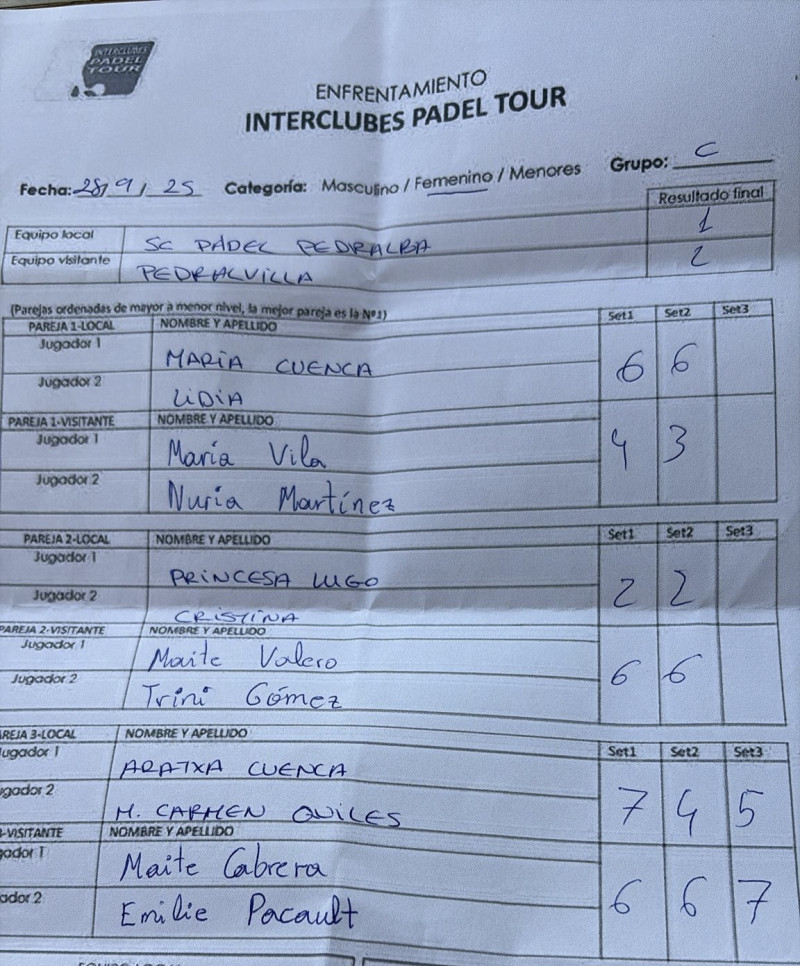 INTERCLUBES
PADEL
TOUR
ENFRENTAMIENTO
INTERCLUBES PADEL TOUR
Fecha: 28/9/25 Categoría: Masculino / Femenino / Menores Grupo: C
Resultado final
Equipo local SC PÁDEL PEDRALBA 1
Equipo visitante PEDRALVILLA 2
(Parejas ordenadas de mayor a menor nivel, la mejor pareja es la Nº1)
PAREJA 1-LOCAL NOMBRE Y APELLIDO Set1 Set2 Set3
Jugador 1 MARÍA CUENCA 6 6
Jugador 2 LIDIA
PAREJA 1-VISITANTE NOMBRE Y APELLIDO
Jugador 1 María Vila 4 3
Jugador 2 Nuria Martínez
PAREJA 2-LOCAL NOMBRE Y APELLIDO Set1 Set2 Set3
Jugador 1 PRINCESA LUGO 2 2
Jugador 2 CRISTINA
PAREJA 2-VISITANTE NOMBRE Y APELLIDO
Jugador 1 Maite Valero 6 6
Jugador 2 Trini Gómez
REJA 3-LOCAL NOMBRE Y APELLIDO Set1 Set2 Set3
ugador 1 ARATXA CUENCA 7 4 5
gador 2 M. CARMEN QUILES
-VISITANTE NOMBRE Y APELLIDO
gador 1 Maite Cabrera 6 6 7
ador 2 Emilie Pacault